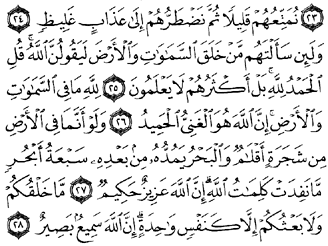 ﴿٢٣﴾ نُمَتِّعُهُمْ قَلِيلًا ثُمَّ نَضْطَرُّهُمْ إِلَىٰ عَذَابٍ غَلِيظٍ ﴿٢٤﴾
وَلَئِن سَأَلْتَهُم مَّنْ خَلَقَ السَّمَٰوَٰتِ وَالْأَرْضَ لَيَقُولُنَّ اللَّهُ ۚ قُلِ
الْحَمْدُ لِلَّهِ ۚ بَلْ أَكْثَرُهُمْ لَا يَعْلَمُونَ ﴿٢٥﴾ لِلَّهِ مَا فِي السَّمَٰوَٰتِ
وَالْأَرْضِ ۚ إِنَّ اللَّهَ هُوَ الْغَنِيُّ الْحَمِيدُ ﴿٢٦﴾ وَلَوْ أَنَّمَا فِي الْأَرْضِ
مِن شَجَرَةٍ أَقْلَٰمٌ وَالْبَحْرُ يَمُدُّهُ مِن بَعْدِهِ سَبْعَةُ أَبْحُرٍ
مَّا نَفِدَتْ كَلِمَٰتُ اللَّهِ ۗ إِنَّ اللَّهَ عَزِيزٌ حَكِيمٌ ﴿٢٧﴾ مَّا خَلْقُكُمْ
وَلَا بَعْثُكُمْ إِلَّا كَنَفْسٍ وَٰحِدَةٍ ۗ إِنَّ اللَّهَ سَمِيعٌ بَصِيرٌ ﴿٢٨﴾